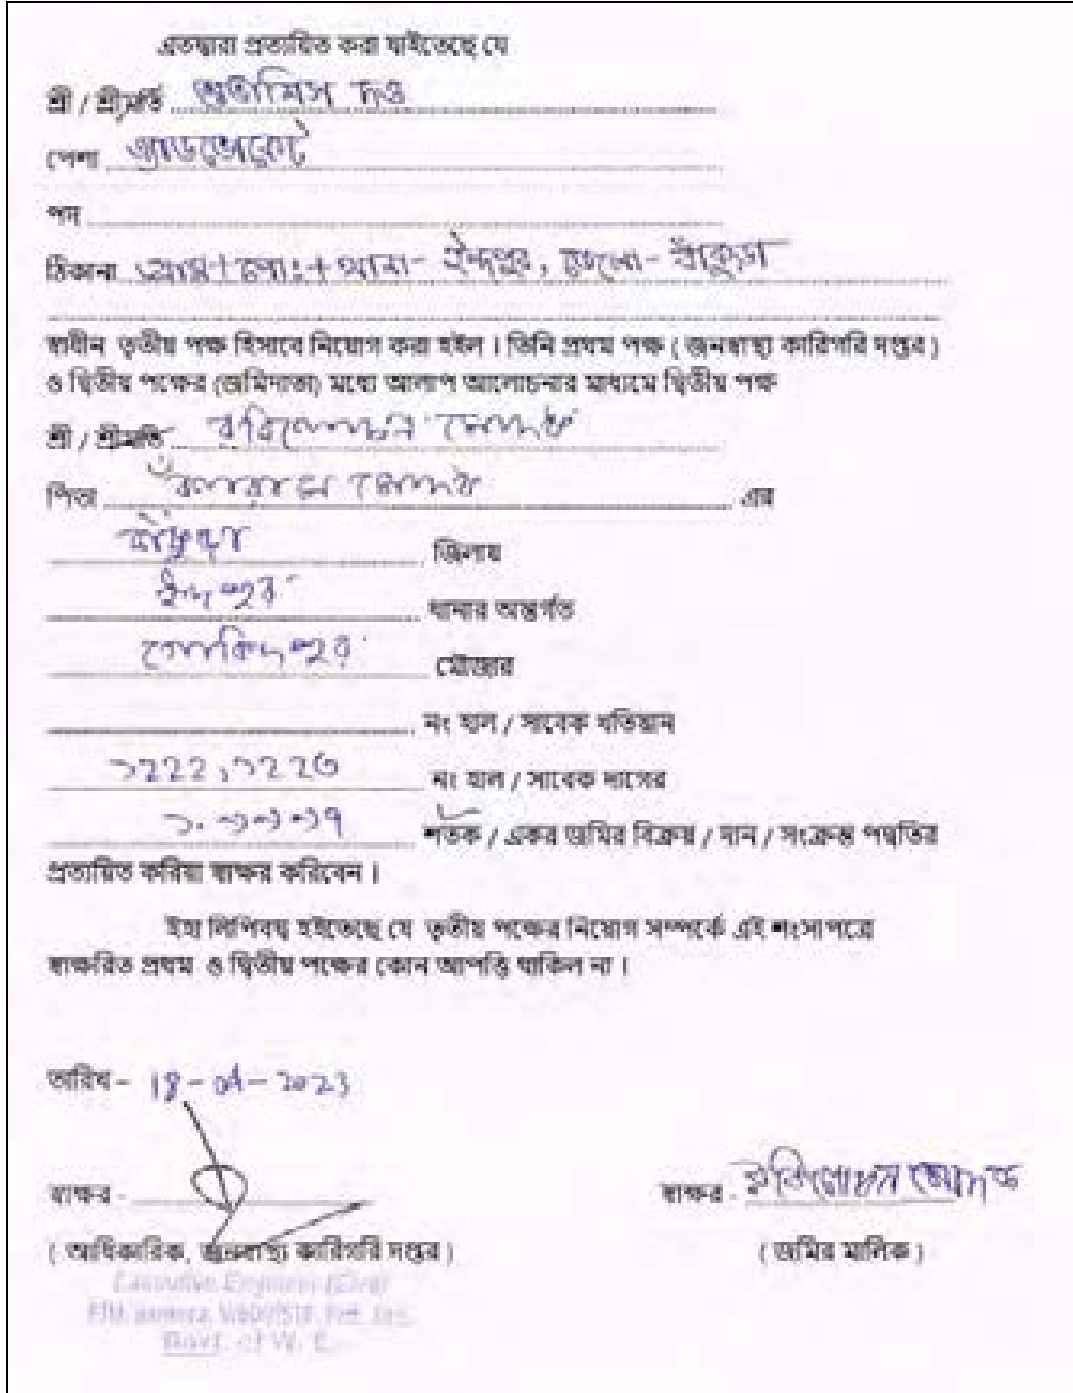 এতদ্বারা প্রত্যয়িত করা যাইতেছে যে
শ্রী / শ্রীমতি শুভাশিস দত্ত
পেশা অ্যাডভোকেট
পদ
ঠিকানা গ্রাম+পোঃ+থানা- ইন্দপুর, জেলা- বাঁকুড়া
স্বাধীন তৃতীয় পক্ষ হিসাবে নিয়োগ করা হইল । তিনি প্রথম পক্ষ ( জনস্বাস্থ্য কারিগরি দপ্তর )
ও দ্বিতীয় পক্ষের (জমিদাতা) মধ্যে আলাপ আলোচনার মাধ্যমে দ্বিতীয় পক্ষ
শ্রী / শ্রীমতি রবিলোচন
পিতা এর
বাঁকুড়া জিলায়
ইন্দপুর থানার অন্তর্গত
গোবিন্দপুর মৌজার
নং হাল / সাবেক খতিয়ান
১২২২, ১২২৩ নং হাল / সাবেক দাগের
শতক / একর জমির বিক্রয় / দান / সংক্রান্ত পদ্ধতির
প্রত্যয়িত করিয়া স্বাক্ষর করিবেন ।
ইহা লিপিবদ্ধ হইতেছে যে তৃতীয় পক্ষের নিয়োগ সম্পর্কে এই শংসাপত্রে
স্বাক্ষরিত প্রথম ও দ্বিতীয় পক্ষের কোন আপত্তি থাকিল না ।
তারিখ - 18-04-2023
স্বাক্ষর -
স্বাক্ষর - রবিলোচন
( আধিকারিক, জনস্বাস্থ্য কারিগরি দপ্তর )
( জমির মালিক )
Executive Engineer (Civil)
Govt. of W. B.